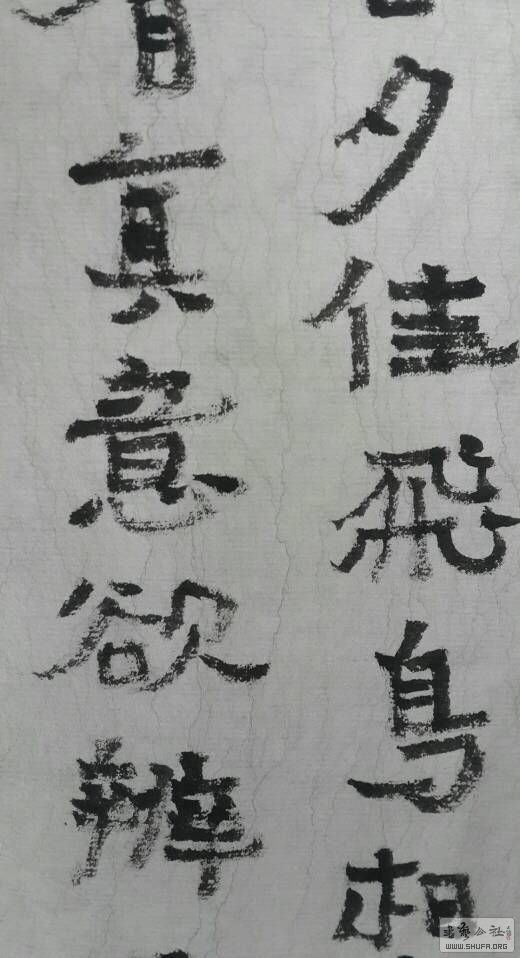 夕佳飛鳥相
有真意欲辨
書藝公社
WWW.SHUFA.ORG